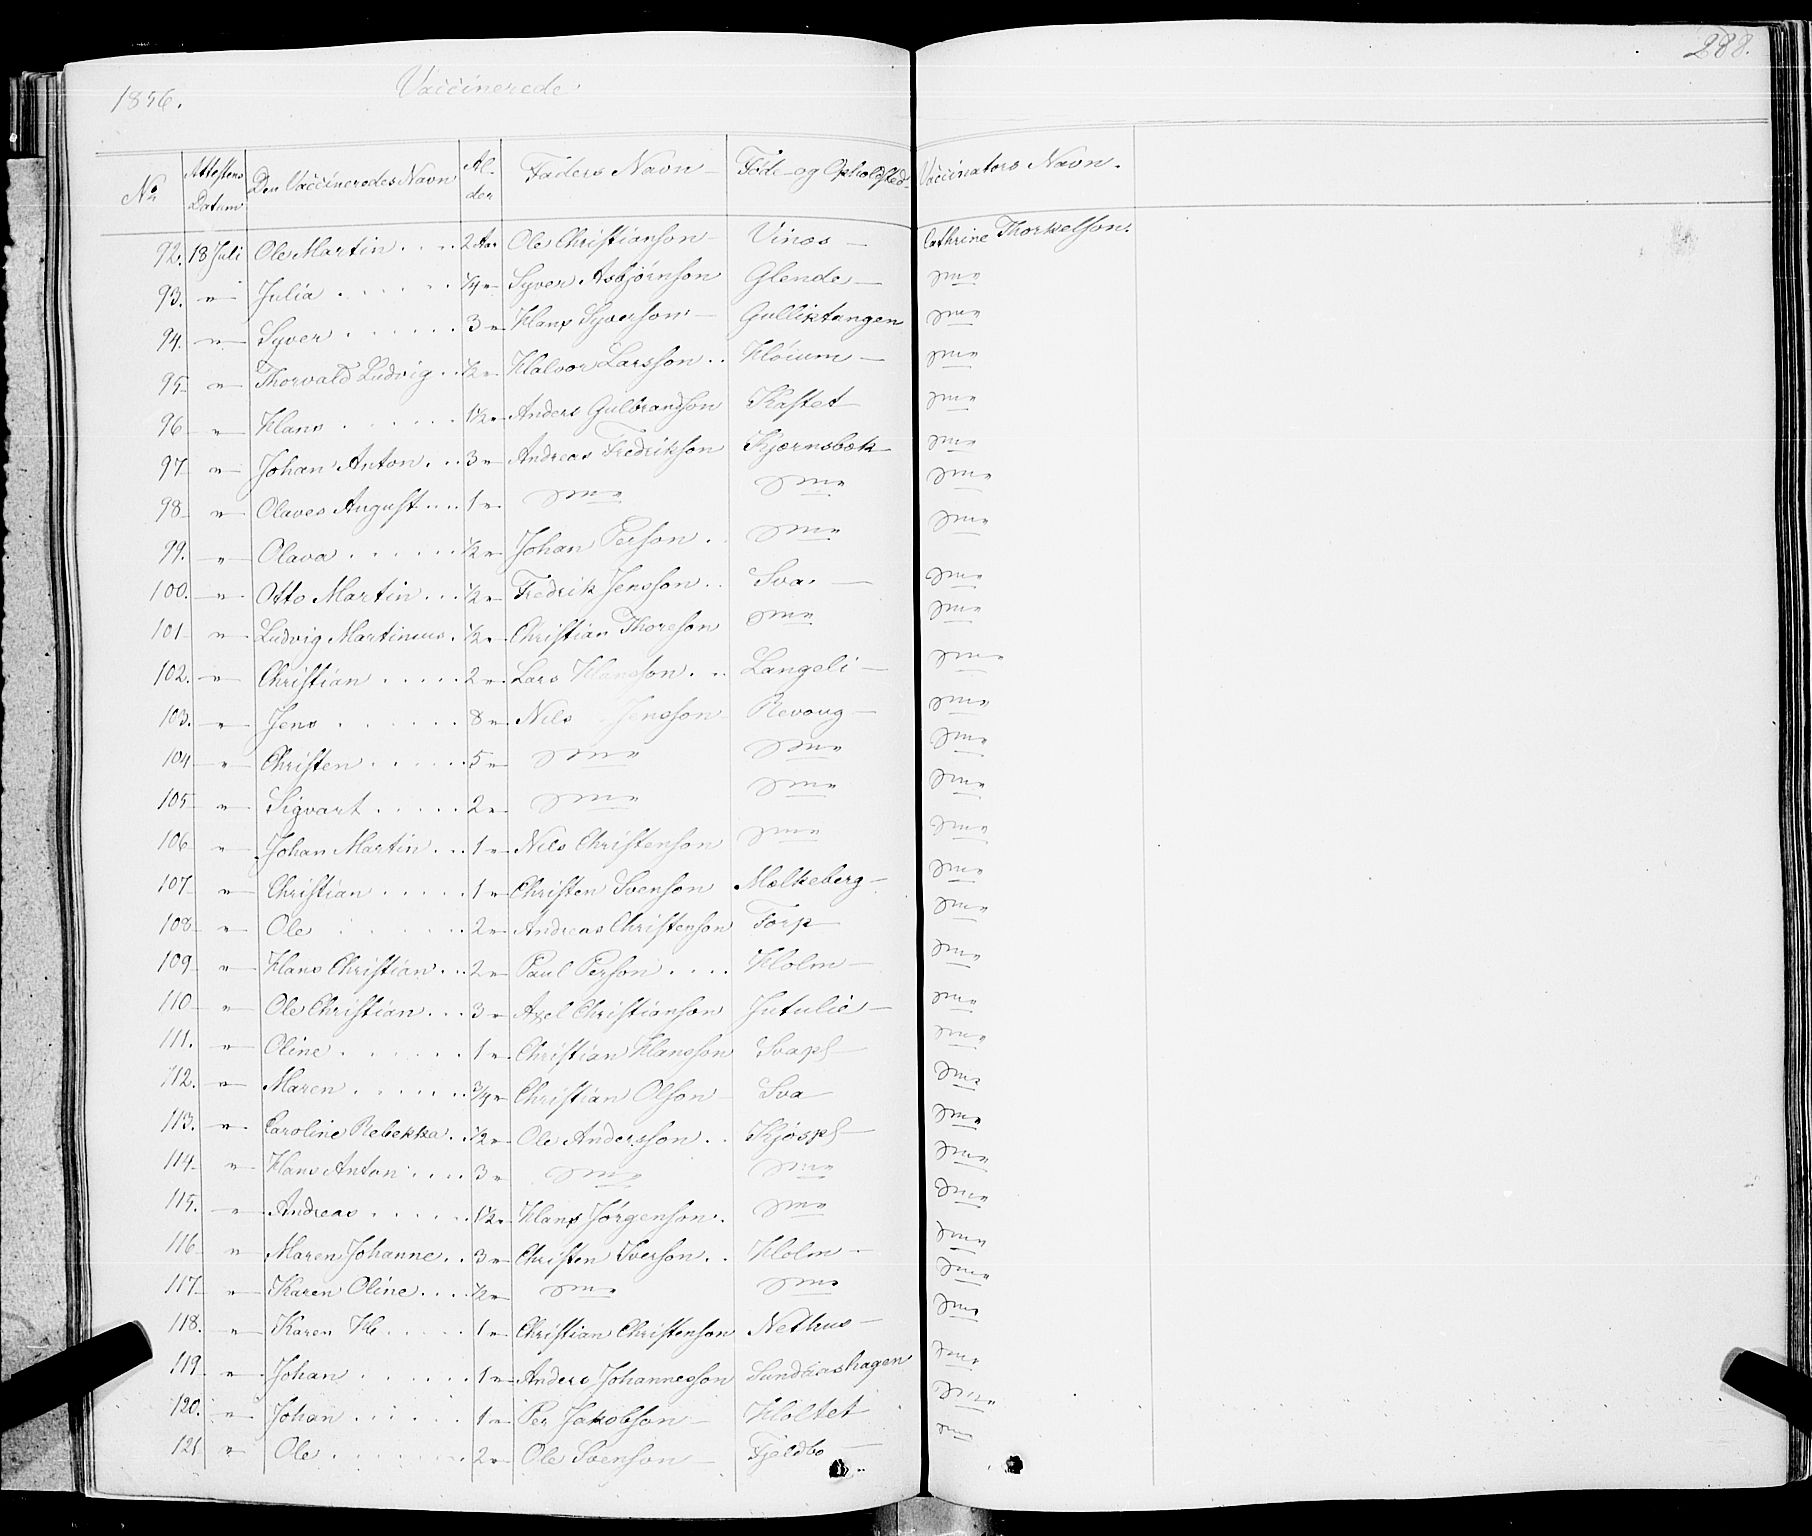 288.
1856. Vaccinerede
No Attestens Datum Den Vaccineredes Navn Alder Faders Navn Føde- og Opholdsted Vaccinators Navn.
92. 18 Juli Ole Martin 2 Aar Ole Christianson Vinæs Cathrine Thorkelson.
93. " Julia 1/4 " Syver Asbjørnson Glende Dito
94. " Syver 3 " Hans Syverson Gulliktangen Dito
95 " Thorvald Ludvig 1/2 " Halvor Larsson Høium Dito
96 " Hans 1 1/2 " Anders Gulbrandson Kastet Dito
97 " Johan Anton 3 " Andreas Fredrikson Kjærnsbæk Dito
98 " Olaves August 1 " Dito Dito Dito
99. " Olava 1/2 " Johan Person Dito Dito
100. " Otto Martin 1/2 " Fredrik Jensson Sva Dito
101 " Ludvig Martinius 1/2 " Christian Thoreson Dito Dito
102. " Christian 2 " Lars Hansson Langeli Dito
103. " Jens 8 " Nils Jensson Revoug Dito
104 " Christen 5 " Dito Dito Dito
105 " Sigvart 2 " Dito Dito Dito
106 " Johan Martin 1 " Nils Christenson Dito Dito
107 " Christian 1 " Christen Svenson Mælkeberg Dito
108 " Ole 2 " Andreas Christenson Torp Dito
109 " Hans Christian 2 " Paul Person Holm Dito
110 " Ole Christian 3 " Axel Christianson Jutulie Dito
111. " Oline 1 " Christian Hansson Svapl Dito
112. " Maren 3/4 " Christian Olson Sva Dito
113. " Caroline Rebekka 1/2 " Ole Andersson Kjøspl Dito
114 " Hans Anton 3 " Dito Dito Dito
115. " Andreas 1 1/2 " Hans Jørgenson Dito Dito
116 " Maren Johanne 3 " Christen Iverson Holm Dito
117 " Karen Oline 1/2 " Dito Dito Dito
118. " Karen 1 " Christian Christenson Nethus Dito
119 " Johan 1 " Anders Johannesson Sundaashagen Dito
120. " Johan 1 " Per Jakobson Holtet Dito
121 " Ole 2 " Ole Svenson Fjeldbo Dito